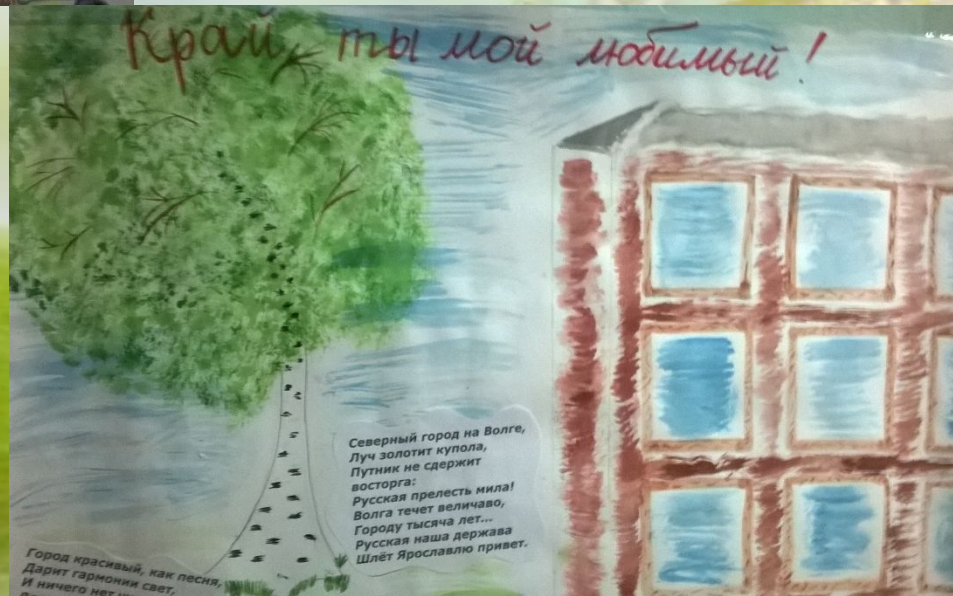 Край ты мой любимый!
Северный город на Волге,
Луч золотит купола,
Путник не сдержит
восторга:
Русская прелесть мила!
Волга течет величаво,
Городу тысяча лет...
Русская наша держава
Шлёт Ярославлю привет.
Город красивый, как песня,
Дарит гармонии свет,
И ничего нет